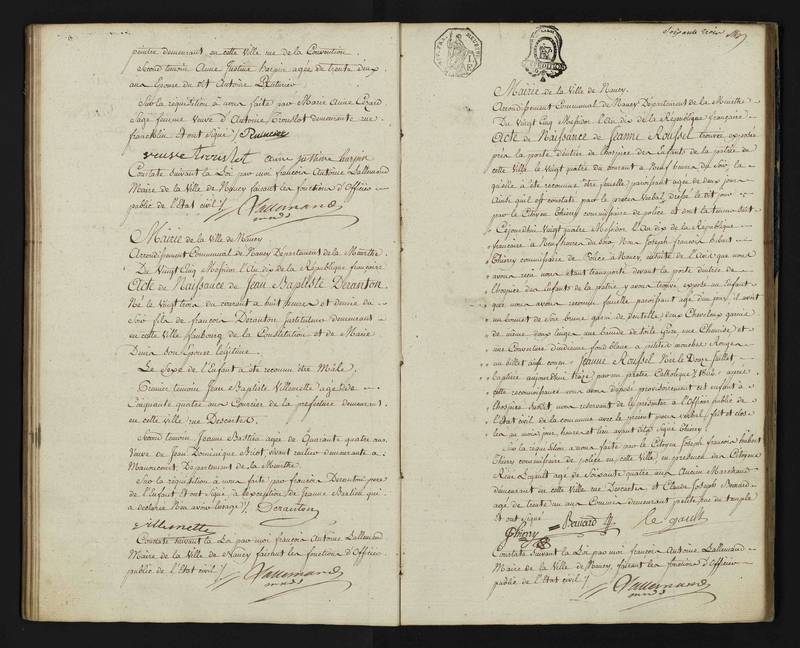 peintre demeurant en cette Ville rue de la Convention.
Second temoin Anne Justine harpin agée de trente deux
ans Epouse du dit Antoine
Sur la requisition à nous faite par Marie Anne
Sage femme Veuve d'Antoine Troustot demeurante rue
francklin et ont signé
veuve troustot anne justine harpin
Constaté suivant la Loi par moi françois Antoine Lallemand
Maire de la Ville de Nancy faisant les fonctions d'Officier
public de l'Etat civil ./.
Lallemand
Mairie de la Ville de Nancy
Arrondissement Communal de Nancy Département de la Meurthe
Du Vingt Cinq Messidor l'An dix de la République française
Acte de Naissance de Jean Baptiste Deranton
Né le Vingt trois du courant à huit heures et demie du
Soir fils de françois Deranton Instituteur demeurant
en cette Ville faubourg de la Constitution et de Marie
son Epouse légitime.
Le Sexe de l'Enfant a été reconnu être Mâle.
Premier temoin Jean Baptiste Villemette agé de
Cinquante quatre ans Courier de la préfecture demeurant
en cette ville rue Descartes.
Second temoin Jeanne Bastien agée de Quarante quatre ans
Veuve de Jean Dominique vivant demeurante à
Département de la Meurthe
Sur la requisition à nous faite par françois Deranton pere
de l'Enfant et ont signé, à l'exception de Jeanne Bastien qui
a declaré n'en avoir l'usage ./. Deranton
Villemette
Constaté suivant la Loi par moi françois Antoine Lallemand
Maire de la Ville de Nancy faisant les fonctions d'Officier
public de l'Etat civil ./.
Lallemand
Soixante treize
Mairie de la Ville de Nancy.
Arrondissement Communal de Nancy Département de la Meurthe
Du Vingt Cinq Messidor l'An dix de la République française
Acte de Naissance de Jeanne Roussel trouvée exposée
près la porte d'entrée de l'hospice des Enfants de la patrie de
cette Ville le Vingt quatre du courant à Neuf heures du Soir, la
quelle a été reconnue être femelle paroissant agée de deux jours
Ainsi qu'il est constaté par le procès Verbal dressé le dit jour
par le Citoyen Thiery commissaire de police et dont la teneur suit
Cejourd'hui Vingt quatre Messidor l'An dix de la République
française à Neuf heures du Soir Nous Joseph françois hubert
Thiery commissaire de Police à Nancy, ensuite de l'avis que nous
avons reçu nous étant transporté devant la porte d'entrée de
l'hospice des Enfants de la patrie y avons trouvé exposé un Enfant
que nous avons reconnu femelle paroissant agé d'un jour, il avoit
un bonnet de soie brune garni de dentelle, deux Chevelieres garnie
de même deux langes une bande de toile grise, une Chemise et
une Couverture d'indienne fond blanc a petites mouches Rouges
un billet ainsi conçu : Jeanne Roussel Née le Douze juillet
baptisée aujourd'hui treize par un prêtre Catholique, 1802 après
cette reconnoissance nous avons déposé provisoirement cet enfant à
l'hospice susdit, nous réservant de le présenter à l'Officier public de
l'Etat civil de la commune avec le présent procès verbal, fait et clos
les an mois jour, heure et lieu avant dits signé Thiery.
Sur la requisition à nous faite par le Citoyen Joseph françois hubert
Thiery commissaire de police en cette Ville, en presence du Citoyen
agé de Soixante quatre ans Ancien Marchand
demeurant en cette Ville rue Descartes et Claude Joseph
agé de trente un ans Commis demeurant petite rue du temple
et ont signé
Thiery
Constaté suivant la Loi par moi françois Antoine Lallemand
Maire de la Ville de Nancy, faisant les fonctions d'Officier
public de l'Etat civil ./.
Lallemand